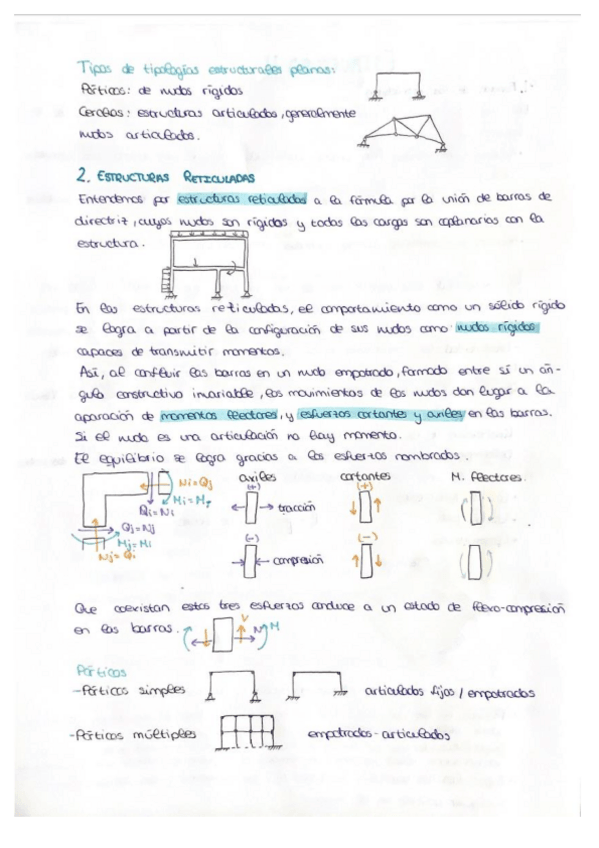 Tipos de tipologías estructurales planas:
Pórticos: de nudos rígidos
Cerchas: estructuras articuladas, generalmente
nudos articulados.
2. ESTRUCTURAS RETICULADAS
Entendemos por estructuras reticuladas a la fórmula por la unión de barras de
directriz, cuyos nudos son rígidos y todas las cargas son coplanarias con la
estructura.
En las estructuras reticuladas, el comportamiento como un sólido rígido
se logra a partir de la configuración de sus nudos como nudos rígidos
capaces de transmitir momentos.
Así, al confluir las barras en un nudo empotrado, formado entre sí un án-
gulo constructivo invariable, los movimientos de los nudos dan lugar a la
aparación de momentos flectores, y esfuerzos cortantes y axiles en las barras.
Si el nudo es una articulación no hay momento.
El equilibrio se logra gracias a los esfuerzos nombrados.
axiles cortantes M. flectores.
(+) (+)
Ni=Qj
Mi=Mj
Qi=Ni
tracción
Qj=Nj
Mj=Mi
Nj=Qi
(-) (-)
compresión
Que coexistan estos tres esfuerzos conduce a un estado de flexo-compresión
en las barras. V N M
Pórticos
-Pórticos simples articulados fijos / empotrados
-Pórticos múltiples empotrados-articulados